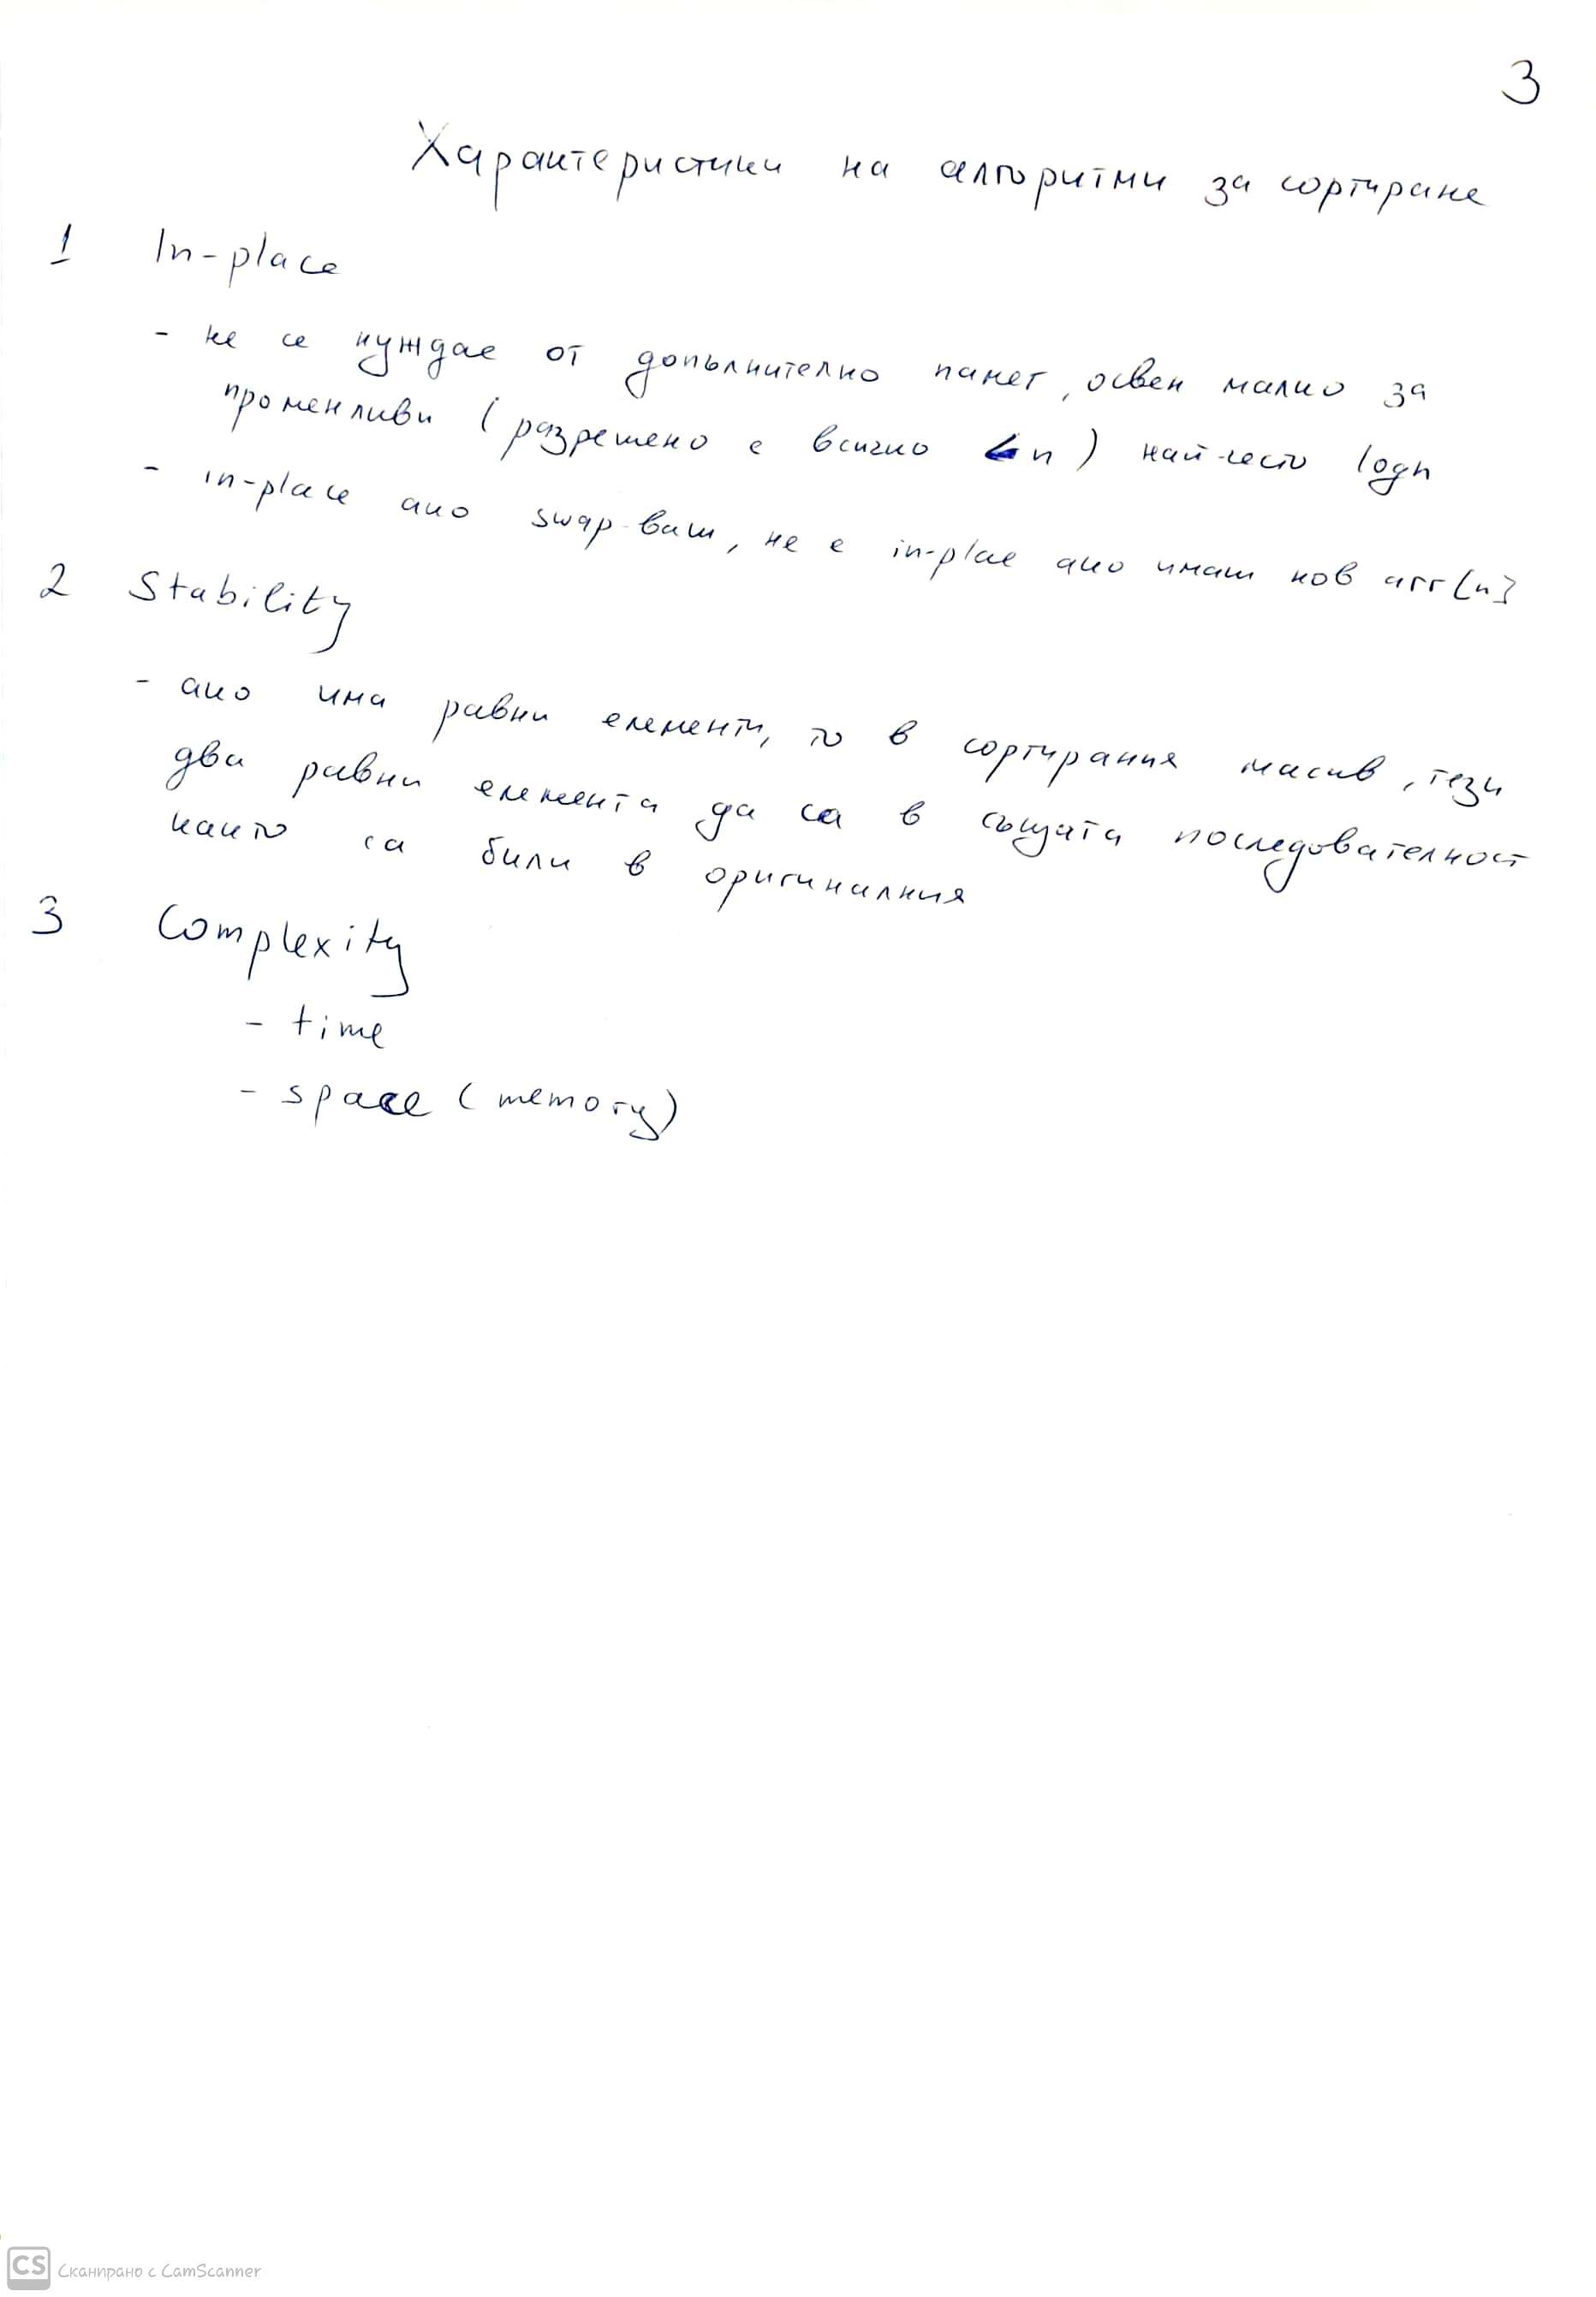 3
Характеристики на алгоритми за сортиране
1 In-place
- не се нуждае от допълнително памет, освен малко за
променливи (разрешено е всичко < n) най-често logn
- in-place ако swap-ваш, не е in-plae ако имаш нов arr[n]
2 Stability
- ако има равни елементи, то в сортирания масив, тези
два равни елемента да са в същата последователност
както са били в оригиналния
3 Complexity
- time
- space (memory)
CS Сканирано с CamScanner